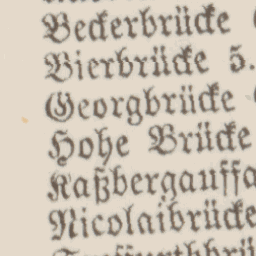 Beckerbrücke
Bierbrücke 5.
Georgbrücke
Hohe Brücke
Kaßbergauffa
Nicolaibrücke